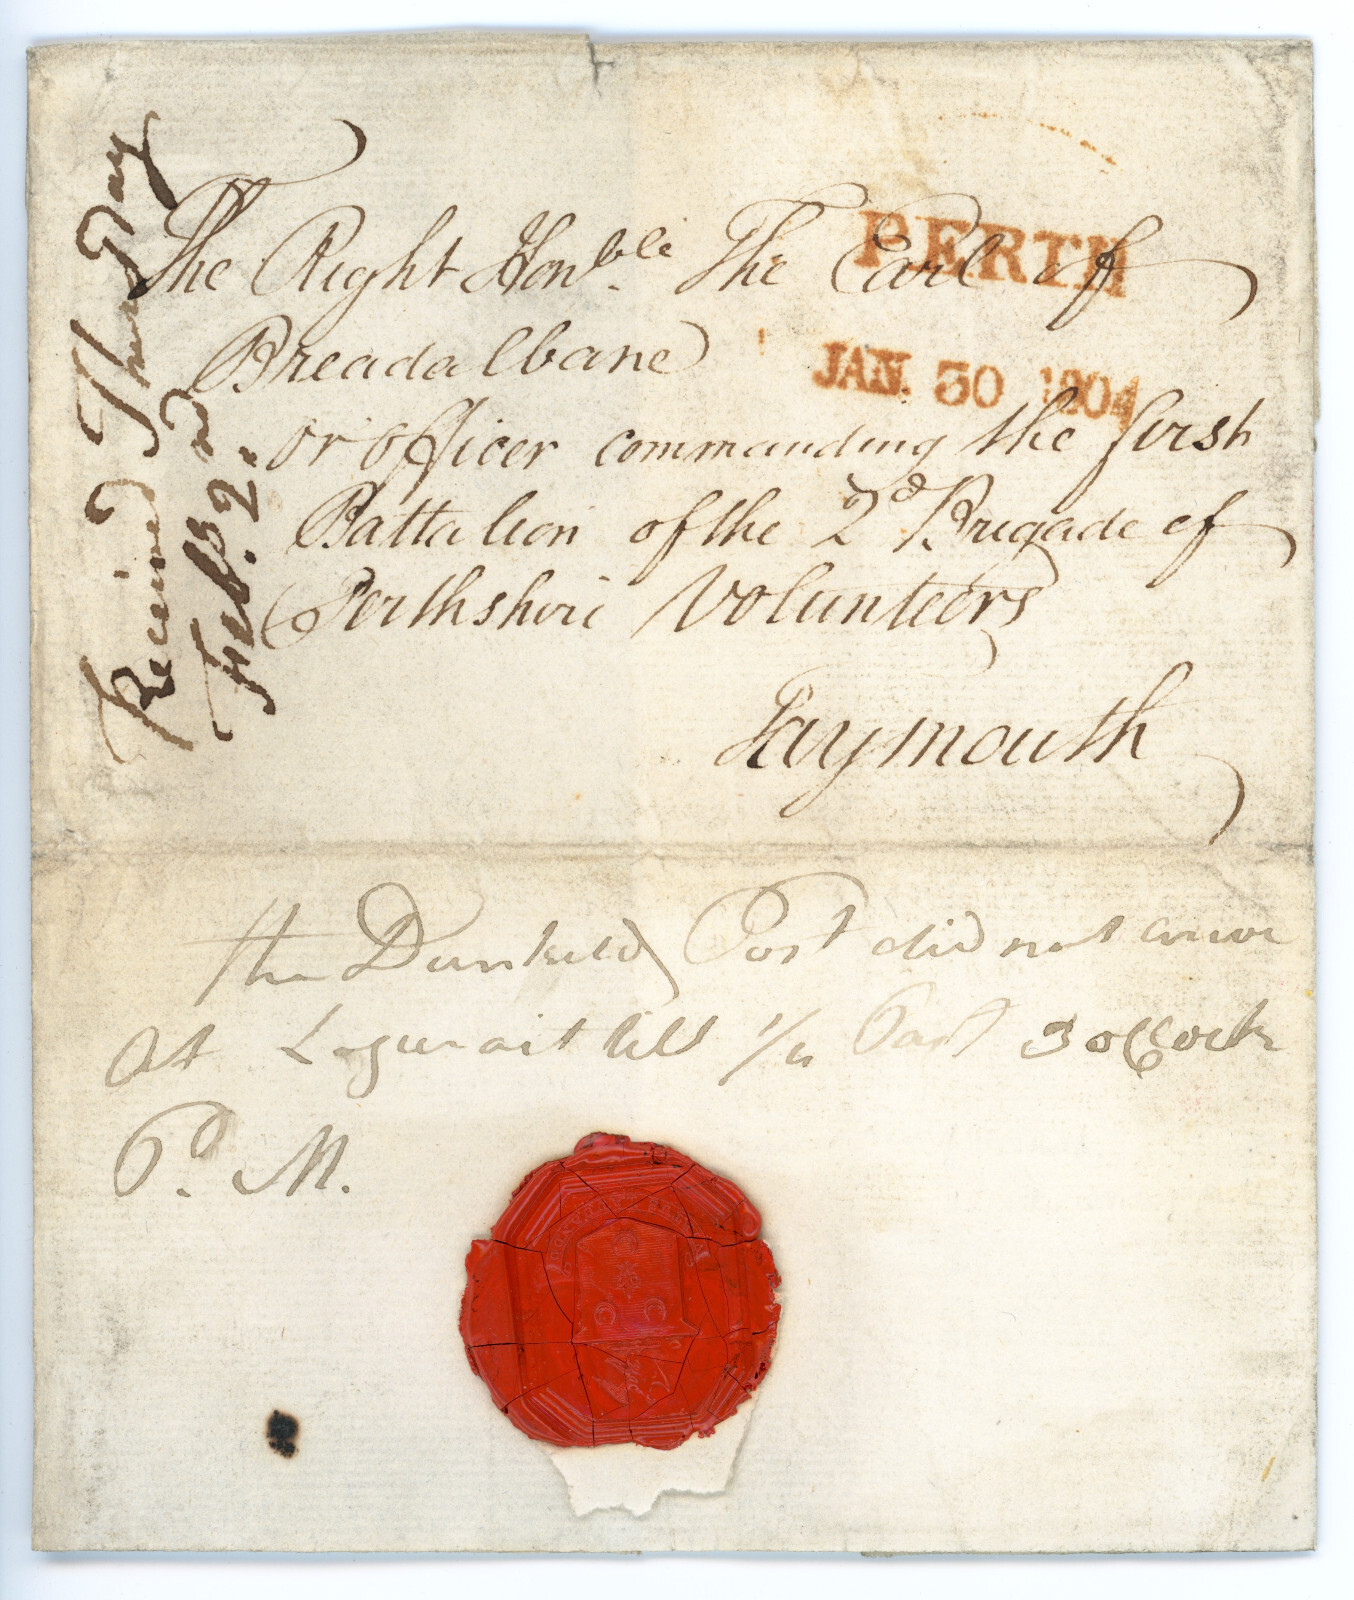 The Right Honble. The Earl of
Breadalbane
or officer commanding the first
Battalion of the 2d Brigade of
Perthshire Volunteers
Taymouth
PERTH
JAN. 30 1804
Received Thursday
Feby. 2nd.
the Dunkeld Post did not arrive
at Logierait till 1/4 Past 3 oClock
P. M.